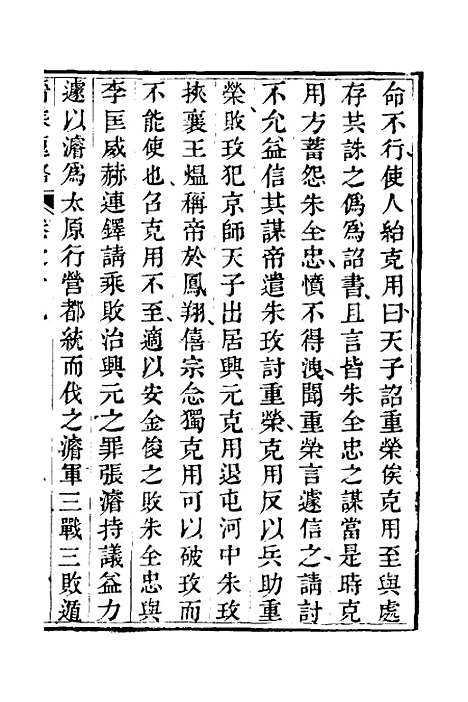 命不行使人紿克用曰天子詔重榮俟克用至與處
存共誅之僞爲詔書且言皆朱全忠之謀當是時克
用方蓄怨朱全忠憤不得洩聞重榮言遽信之請討
不允益信其謀帝遣朱玫討重榮克用反以兵助重
榮敗玫犯京師天子出居興元克用退屯河中朱玫
挾襄王熅稱帝於鳳翔僖宗念獨克用可以破玫而
不能使也召克用不至適以安金俊之敗朱全忠與
李匡威赫連鐸請乘敗治興元之罪張濬持議益力
遽以濬爲太原行營都統而伐之濬軍三戰三敗遁